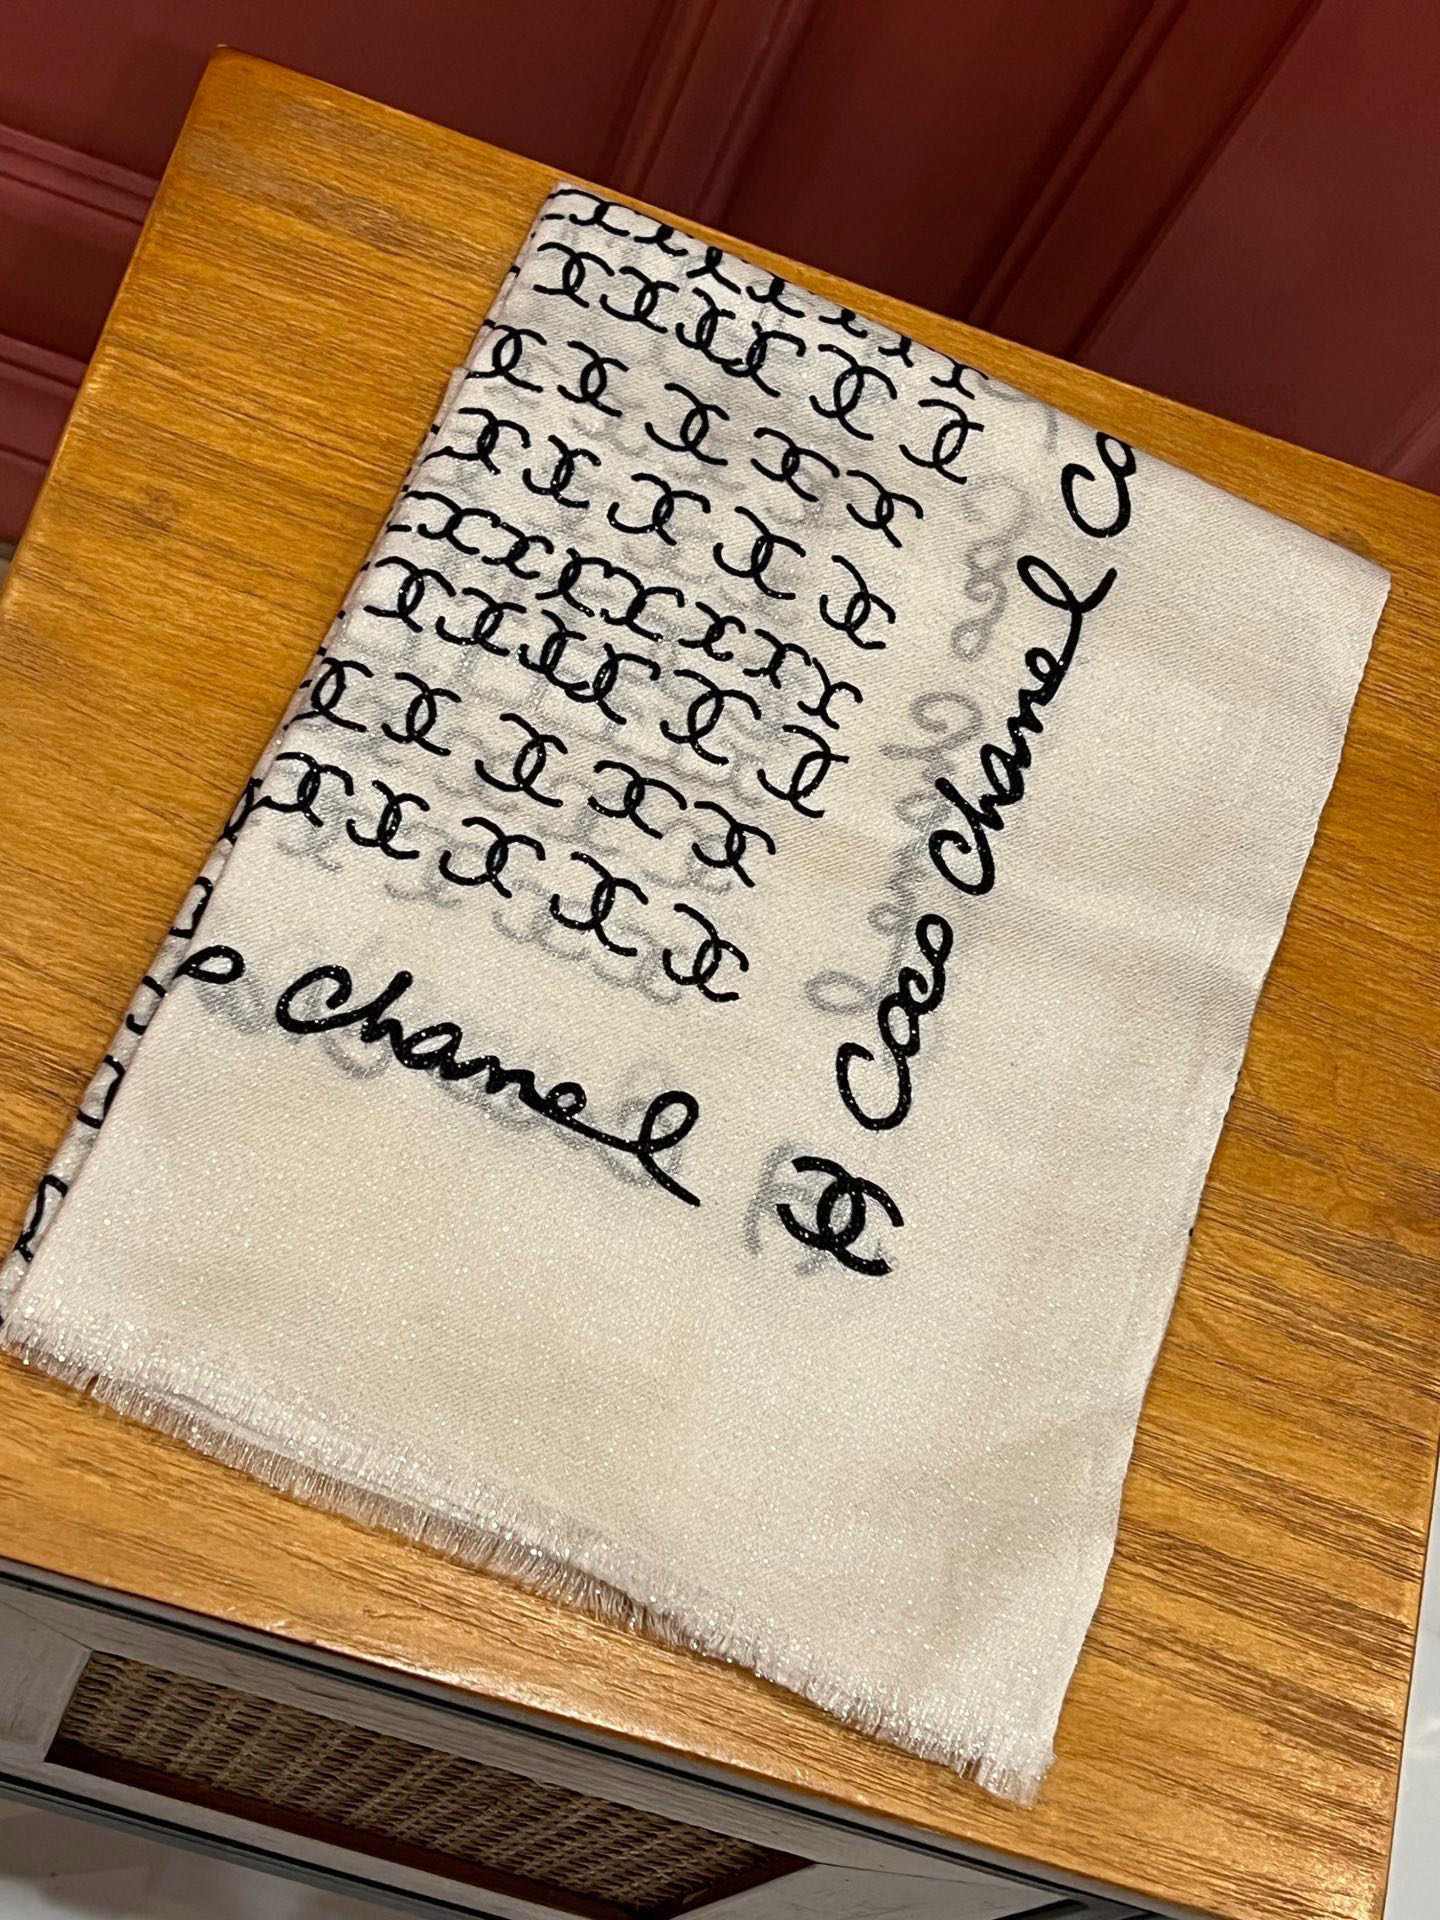 Co
Coco Chanel
o Chanel